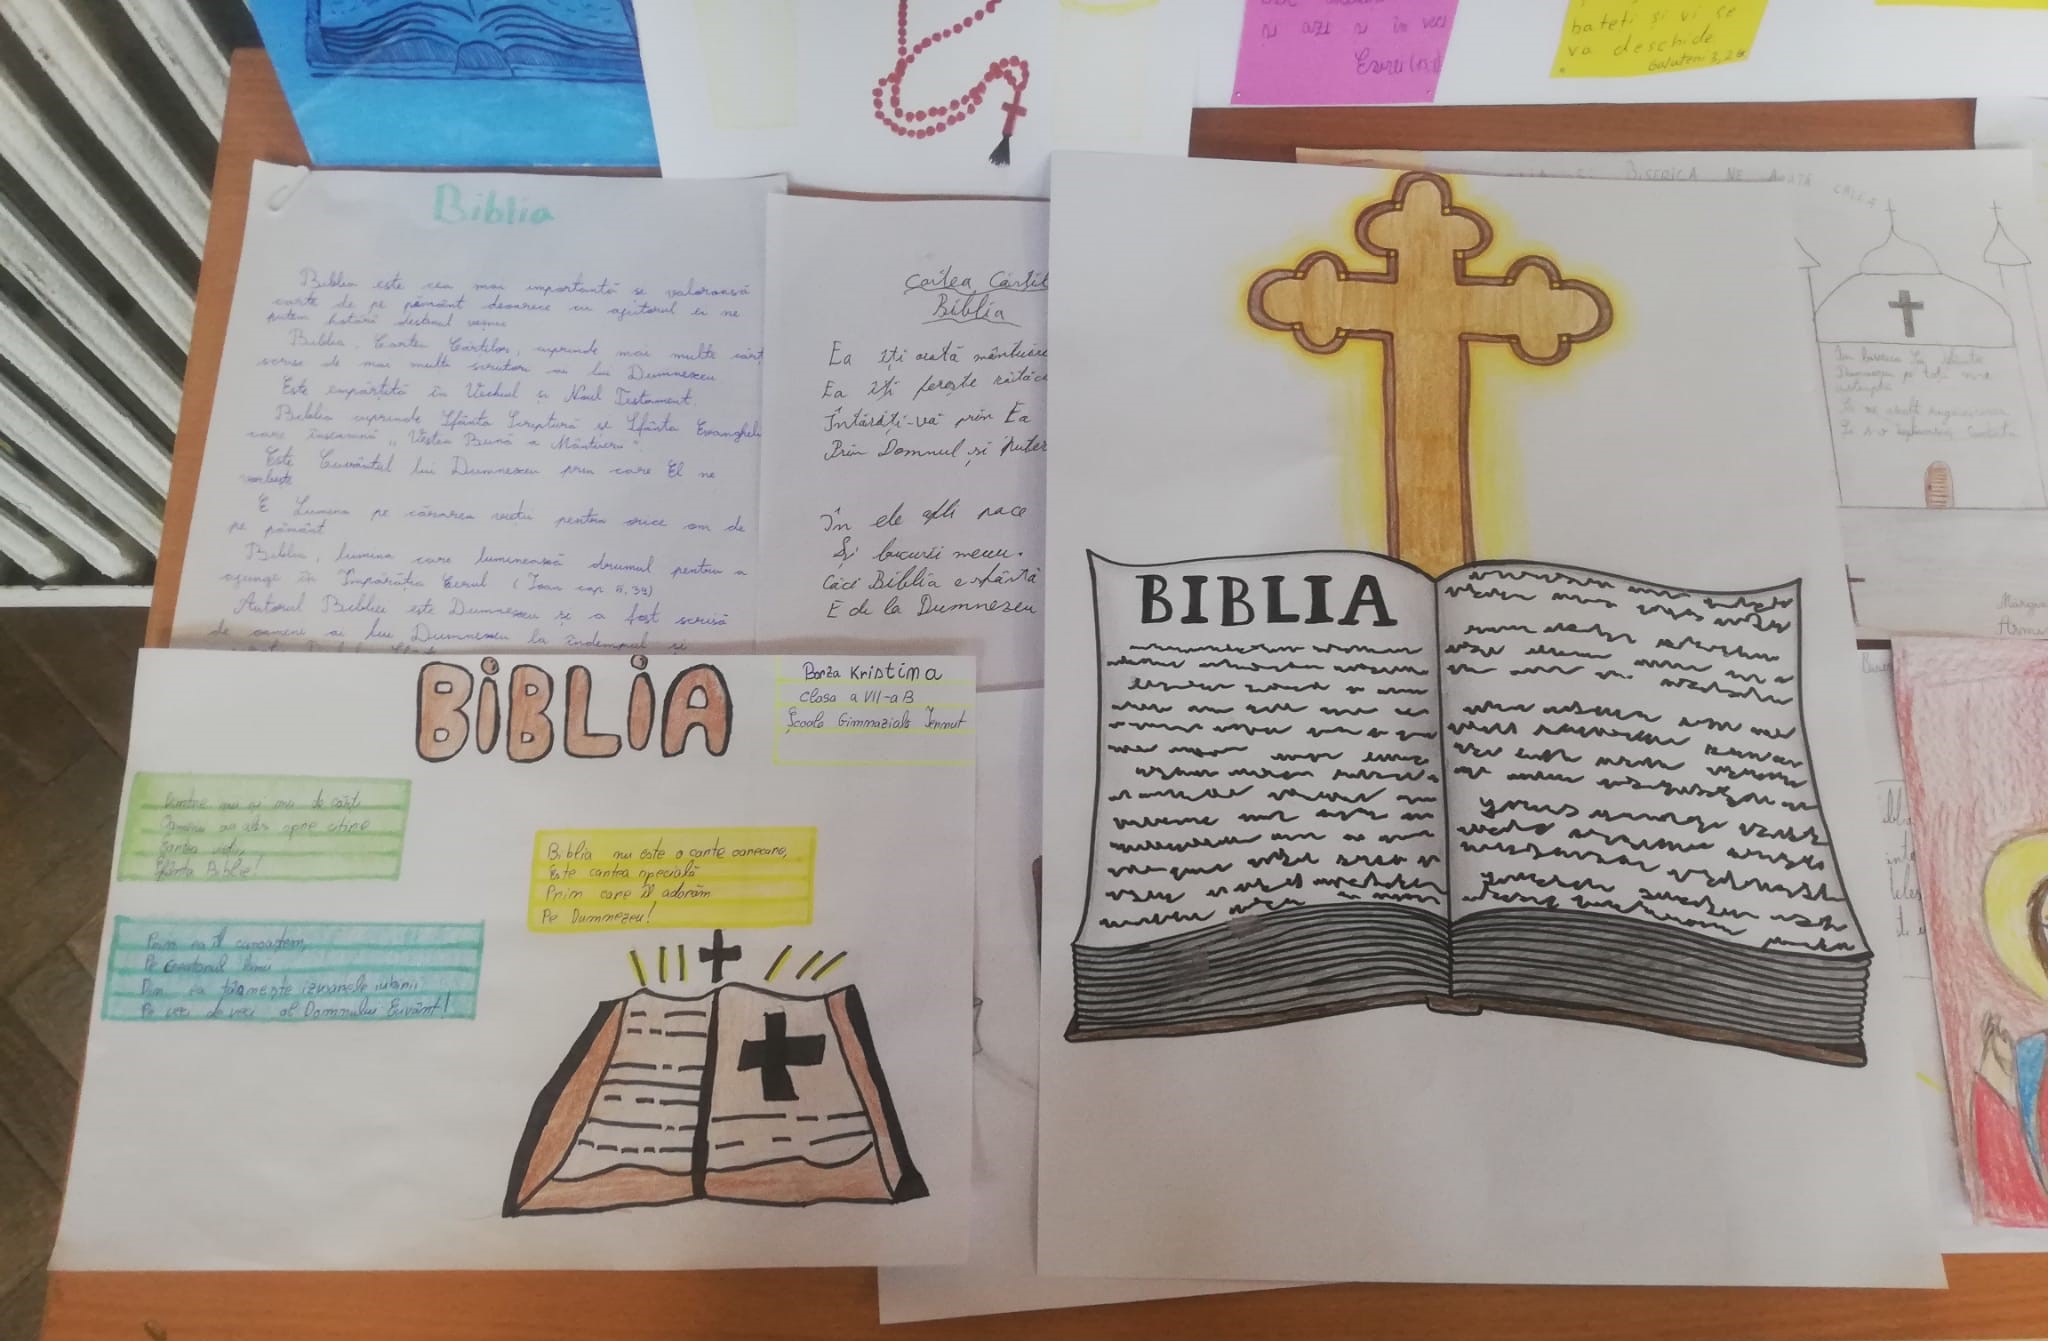 și azi și în veci
Evrei (13,8)
bateți și vi se
va deschide
Galateni 3, 26
Biblia
Biblia este cea mai importantă și valoroasă
carte de pe pământ deoarece cu ajutorul ei ne
putem hotărî destinul veșnic
Biblia, Cartea Cărților, cuprinde mai multe cărț
scrise de mai mulți scriitori ai lui Dumnezeu
Este împărțită în Vechiul și Noul Testament.
Biblia cuprinde Sfânta Scriptură și Sfânta Evangheli
care înseamnă "Vestea Bună a Mântuirii"
Este Cuvântul lui Dumnezeu prin care El ne
vorbește
E Lumina pe cărarea vieții pentru orice om de
pe pământ
Biblia, lumina care luminează drumul pentru a
ajunge în Împărăția Cerul (Ioan cap. 5, 39)
Autorul Bibliei este Dumnezeu și a fost scrisă
de oameni ai lui Dumnezeu la îndemnul și
Cartea Cărțil
Biblia
Ea îți arată mântuire
Ea îți ferește rătăc
Întăriți-vă prin Ea
Prin Domnul și puter
În ele afli pace
Și bucurii mereu.
Căci Biblia e sfântă
E de la Dumnezeu
BISERICA NE ARATĂ CALEA
În biserica Sa, sfântă
Dumnezeu pe toți ne
așteaptă
BIBLIA
BIBLIA
Borza Kristina
Clasa a VII-a B
Școala Gimnazială Iernut
Dintre mii și mii de cărți
Oamenii au ales spre citire
Cartea vieții,
Sfânta Biblie!
Biblia nu este o carte oarecare,
Este cartea specială
Prin care îl adorăm
Pe Dumnezeu!
Prin ea îl cunoaștem,
Pe Creatorul lumii
Din ea țâșnește izvoarele iubirii
Pe veci de veci al Domnului Cuvânt!